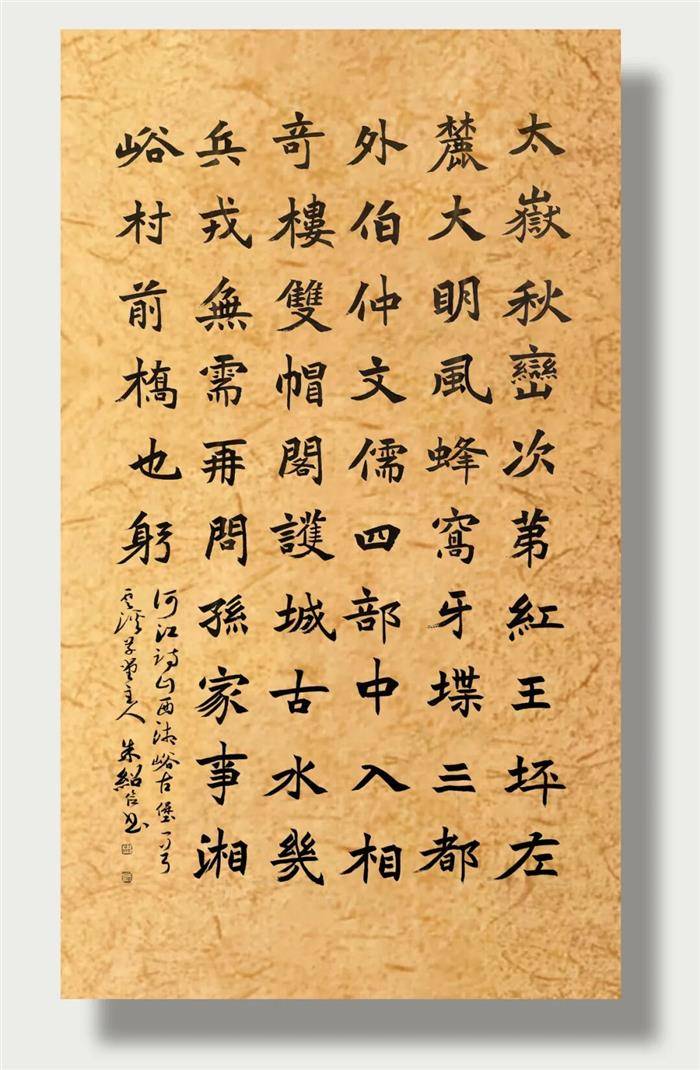 太嶽秋巒次苐紅王坪左
麓大明風蜂窩牙堞三都
外伯仲文儒四部中入相
竒樓雙帽閣護城古水幾
兵戎無需再問孫家事湘
峪村前橋也躬
江詩山西湘峪古堡
草堂主人 朱紹信書